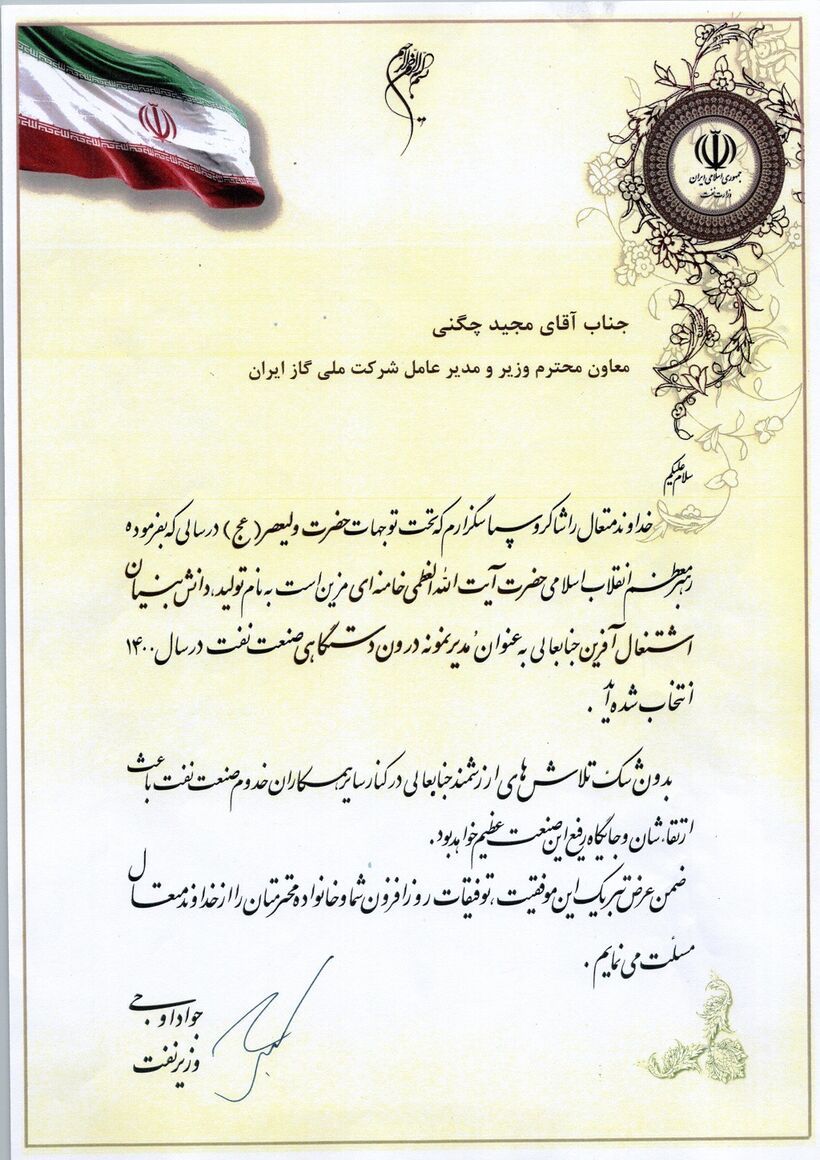 بسم الله الرحمن الرحیم
جمهوری اسلامی ایران
وزارت نفت
جناب آقای مجید چگنی
معاون محترم وزیر و مدیر عامل شرکت ملی گاز ایران
سلام علیکم
خداوند متعال را شاکر و سپاسگزارم که تحت توجهات حضرت ولیعصر (عج) در سالی که بفرموده
رهبر معظم انقلاب اسلامی حضرت آیت الله العظمی خامنه ای مزین است به نام تولید، دانش بنیان
اشتغال آفرین جنابعالی به عنوان مدیر نمونه درون دستگاهی صنعت نفت در سال ۱۴۰۰
انتخاب شده اید .
بدون شک تلاش های ارزشمند جنابعالی در کنار سایر همکاران خدوم صنعت نفت باعث
ارتقاء شان و جایگاه رفیع این صنعت عظیم خواهد بود .
ضمن عرض تبریک این موفقیت ، توفیقات روز افزون شما و خانواده محترمتان را از خداوند متعال
مسئلت می نمایم .
جواد اوجی
وزیر نفت